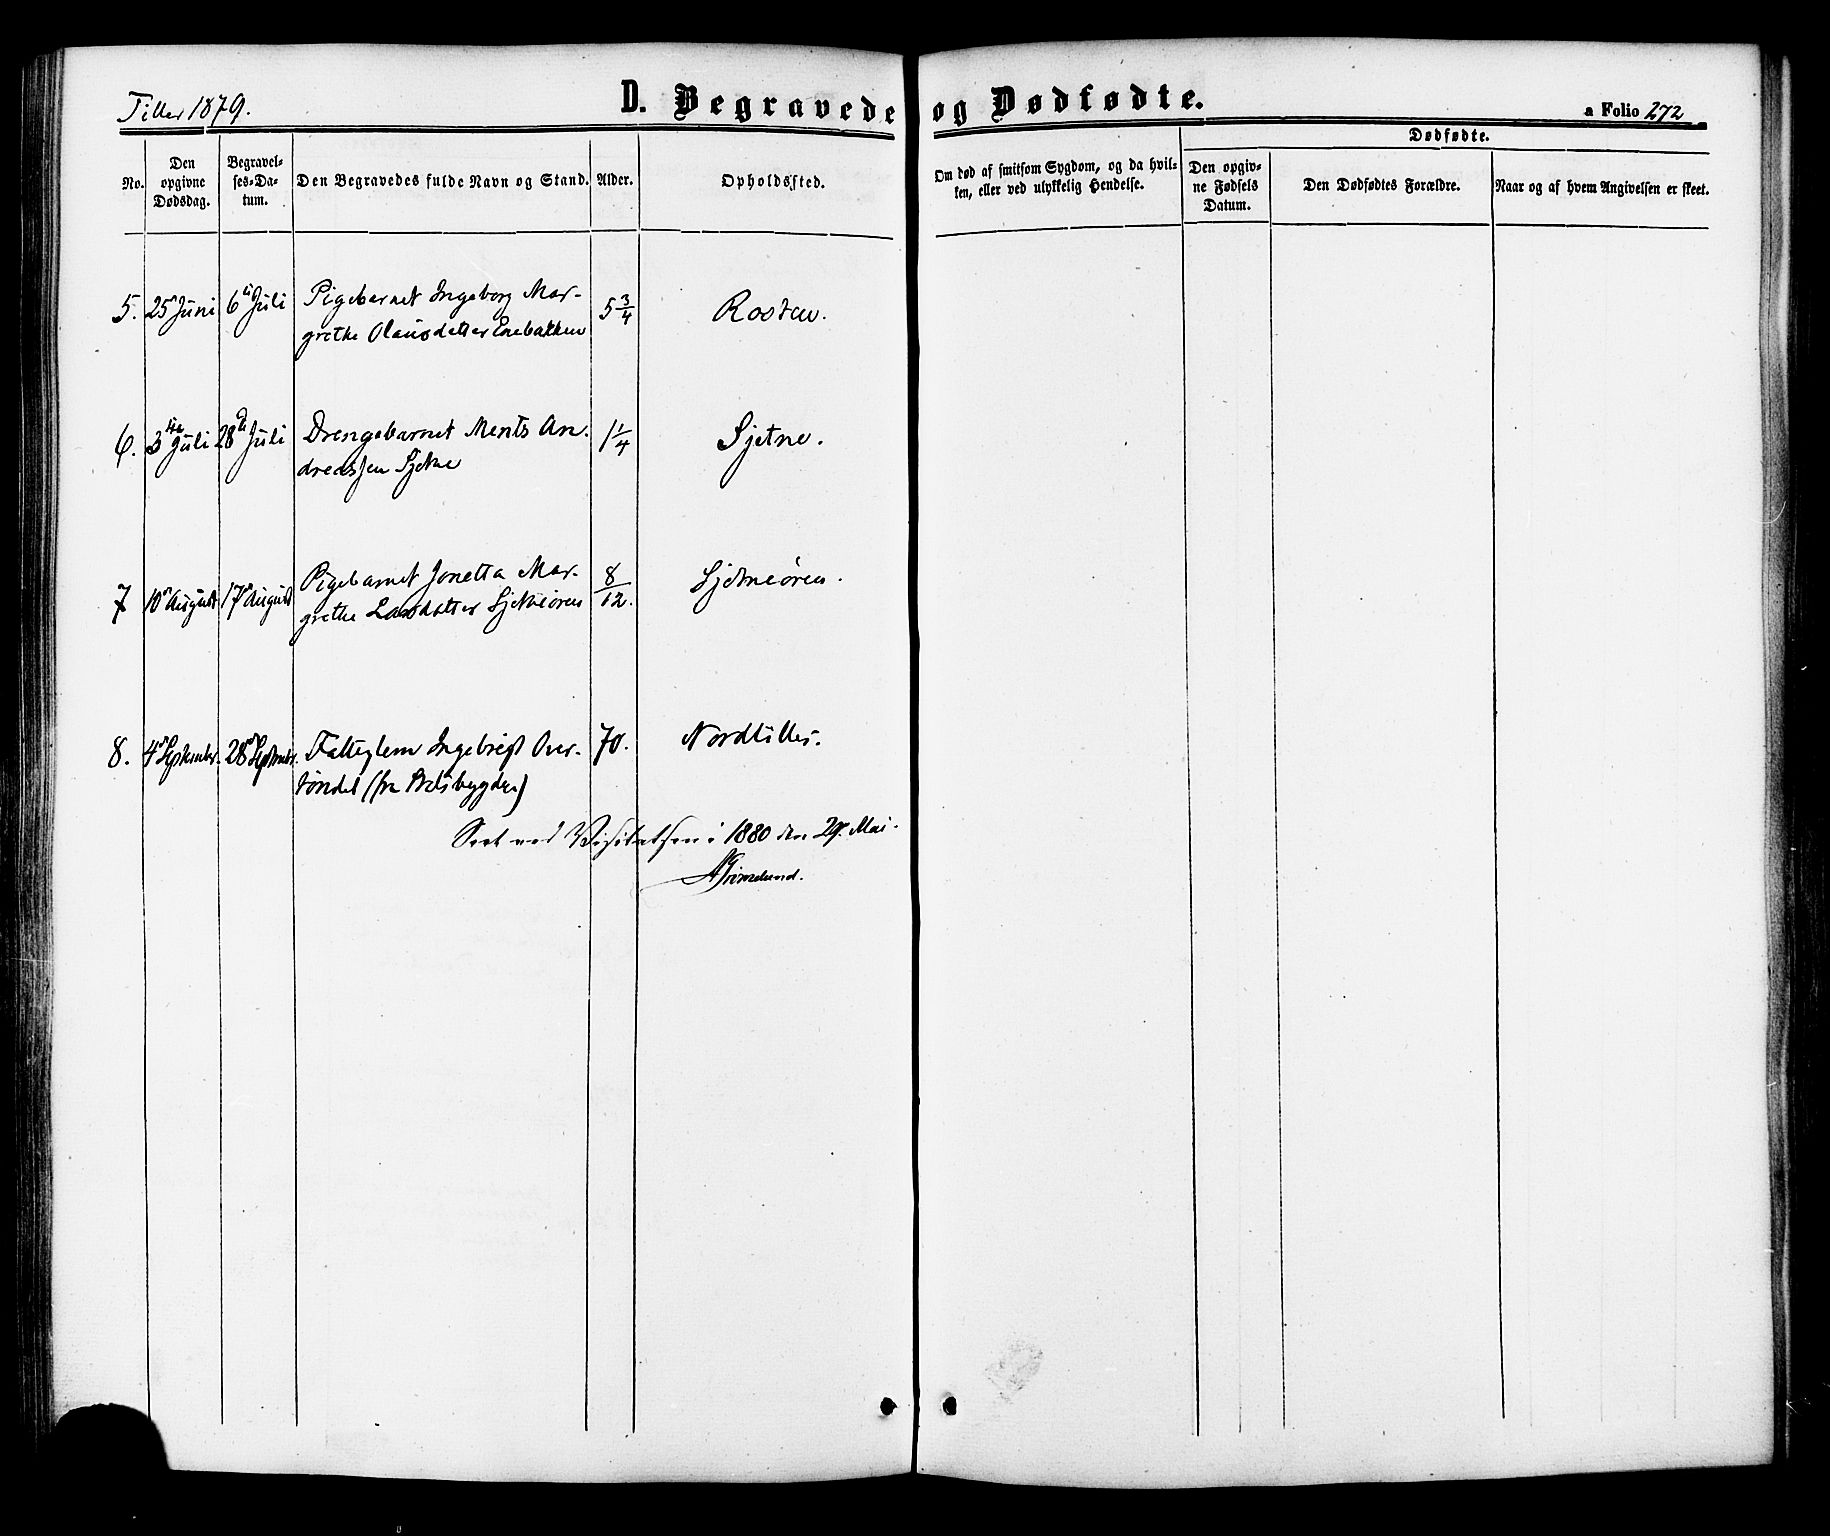 Tiller 1879.
D. Begravede og Dødfødte.
a Folio 272
No.
Den opgivne Dødsdag.
Begravelses-Datum.
Den Begravedes fulde Navn og Stand.
Alder.
Opholdssted.
Om død af smitsom Sygdom, og da hvilken, eller ved ulykkelig Hendelse.
Dødfødte.
Den opgivne Fødsels Datum.
Den Dødfødtes Forældre.
Naar og af hvem Angivelsen er skeet.
5. 25 Juni 6 Juli Pigebarnet Ingeborg Mar- 5 3/4 Rosten.
grethe Olausdatter Enebakken
6. 3 Juli 28 Juli Drengebarnet Ments An- 1 1/4 Sjetne.
dreassen Sjetne
7 10 August 17 August Pigebarnet Jonetta Mar- 8/12. Sjetneøren.
grethe Larsdatter Sjetneøren
8. 4 September. 28 Septembr. Fattiglem Ingebrigt Over- 70. Nordtiller.
tøndel (fra Budsbygden)
Seet ved Visitatsen i 1880 den 29. Mai.
Grimelund.